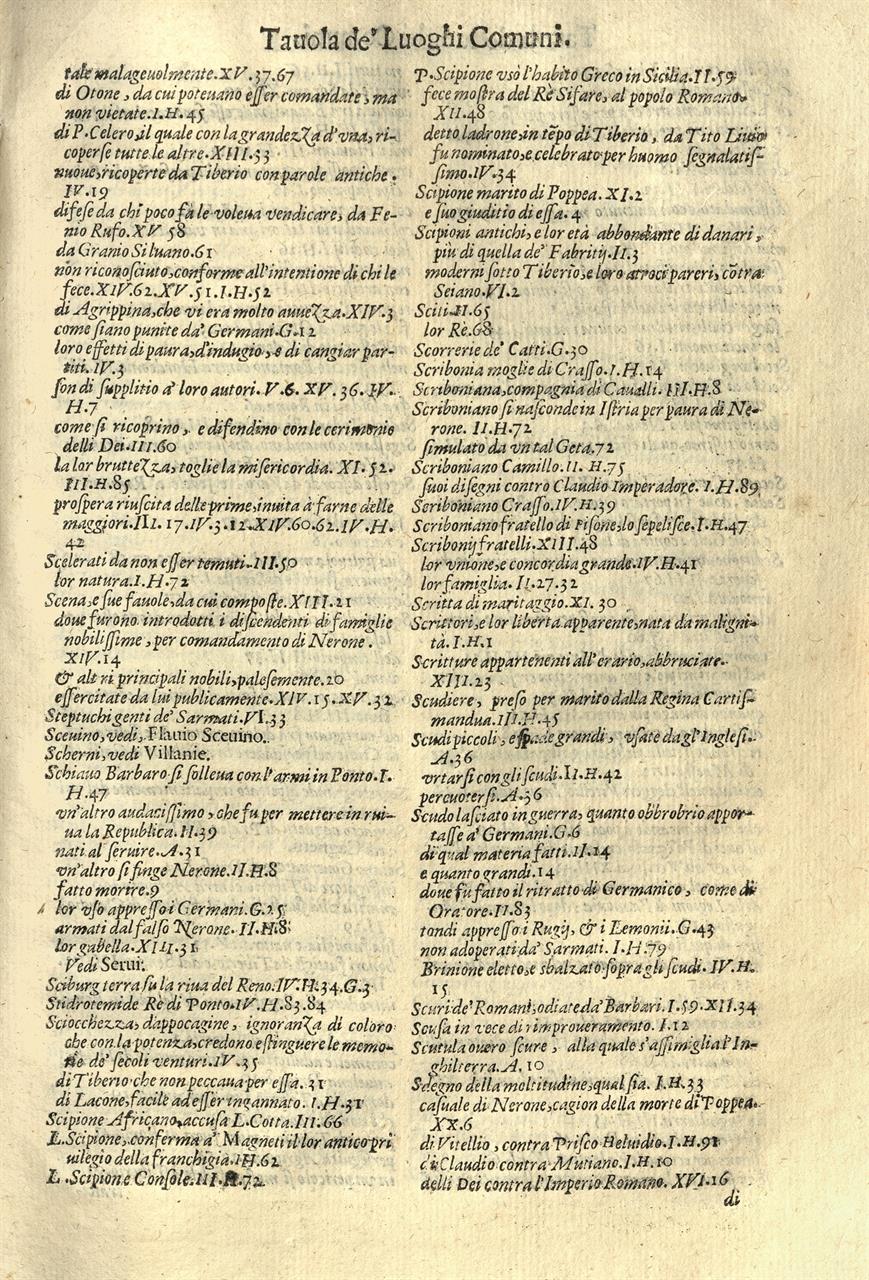 Tauola de' Luoghi Comuni.
tale malageuolmente.XV.37.67
di Otone, da cui poteuano esser comandate, ma
non vietate.I.H.45
di P.Celero, il quale con la grandezza d'vna, ri-
coperse tutte le altre.XIII.33
nuoue, ricoperte da Tiberio con parole antiche.
IV.19
difese da chi poco fà le voleua vendicare, da Fe-
nio Rufo.XV 58
da Granio Siluano.61
non riconosciuto, conforme all'intentione di chi le
fece.XIV.62.XV.51.I.H.52
di Agrippina, che vi era molto auuezza.XIV.3
come siano punite da' Germani.G.12
loro effetti di paura, d'indugio, e di cangiar par-
titi.IV.3
son di supplitio a' loro autori.V.6.XV.36.IV.
H.7
come si ricoprino, e difendino con le cerimonie
delli Dei.III.60
la lor bruttezza, toglie la misericordia. XI.52.
III.H.85
prospera riuscita delle prime, inuita à farne delle
maggiori.III.17.IV.3.12.XIV.60.62.IV.H.
42
Scelerati da non esser temuti.III.50
lor natura.I.H.72
Scena, e sue fauole, da cui composte.XIII.21
doue furono introdotti i discendenti di famiglie
nobilissime, per comandamento di Nerone.
XIV.14
& altri principali nobili, palesemente.20
essercitate da lui publicamente.XIV.15.XV.32
Steptuchi genti de' Sarmati.VI.33
Sceuino, vedi, Flauio Sceuino.
Scherni, vedi Villanie.
Schiauo Barbaro si solleua con l'armi in Ponto.I.
H.47
vn'altro audacissimo, che fu per mettere in rui-
ua la Republica.H.39
nati al seruire.A.31
vn'altro si finge Nerone.II.H.8
fatto morire.9
lor vso appresso i Germani.G.25
armati dal falso Nerone.II.H.8
lor gabella.XIII.31
Vedi Serui.
Sciburg terra su la riua del Reno.IV.H.34.G.3
Stidrotemide Rè di Ponto.IV.H.83.84
Sciocchezza, dappocagine, ignoranza di coloro
che con la potenza, credono estinguere le memo-
rie de' secoli venturi.IV.35
di Tiberio che non peccaua per essa.31
di Lacone, facile ad esser ingannato.I.H.31
Scipione Africano, accusa L.Cotta.III.66
L.Scipione, conferma a' Magneti il lor antico pri
uilegio della franchigia.IH.62
L.Scipione Console.III.H.72
P.Scipione vsò l'habito Greco in Sicilia.II.59
fece mostra del Rè Sifare, al popolo Romano.
XII.48
detto ladrone, in tẽpo di Tiberio, da Tito Liuio
fu nominato, e celebrato per huomo segnalatis-
simo.IV.34
Scipione marito di Poppea.XI.2
e suo giuditio di essa.4
Scipioni antichi, e lor età abbondante di danari,
più di quella de' Fabritij.II.3
moderni sotto Tiberio, e loro atroci pareri, cõtra
Seiano.VI.2
Sciti.II.65
lor Rè.68
Scorrerie de' Catti.G.30
Scribonia moglie di Crasso.I.H.14
Scriboniana, compagnia di Caualli.III.H.8
Scriboniano si nasconde in Istria per paura di Ne-
rone. II.H.72
simulato da vn tal Geta.72
Scriboniano Camillo.II.H.75
suoi disegni contro Claudio Imperadore. I.H.89
Scriboniano Crasso.IV.H.39
Scriboniano fratello di Pisone, lo sepelisce.I.H.47
Scribonij fratelli.XIII.48
lor vnione, e concordia grande.IV.H.41
lor famiglia. II.27.32
Scritta di maritaggio.XI. 30
Scrittori, e lor libertà apparente, nata da maligni-
tà.I.H.1
Scritture appartenenti all'erario, abbruciate.
XIII.23
Scudiere, preso per marito dalla Regina Cartis-
mandua.III.H.45
Scudi piccoli, e spade grandi, vsate dagl'Inglesi.
A.36
vrtarsi con gli scudi.II.H.42
percuotersi.A.36
Scudo lasciato in guerra, quanto obbrobrio appor-
tasse a' Germani.G.6
di qual materia fatti.II.14
e quanto grandi.14
doue fu fatto il ritratto di Germanico, come di
Oratore.II.83
tondi appresso i Rugij, & i Lemonii.G.43
non adoperati da' Sarmati. I.H.79
Brinione eletto, e sbalzato sopra gli scudi. IV.H.
15
Scuri de' Romani, odiate da' Barbari.I.59.XII.34
Scusa in vece di rimproueramento. I.12
Scutula ouero scure, alla quale s'assimiglia l'In-
ghilterra.A. 10
Sdegno della moltitudine, qual sia. I.H.33
casuale di Nerone, cagion della morte di Poppea.
XX.6
di Vitellio, contra Prisco Heluidio.I.H.91
di Claudio contra Mutiano.I.H.10
delli Dei contra l'Imperio Romano. XVI.16
di